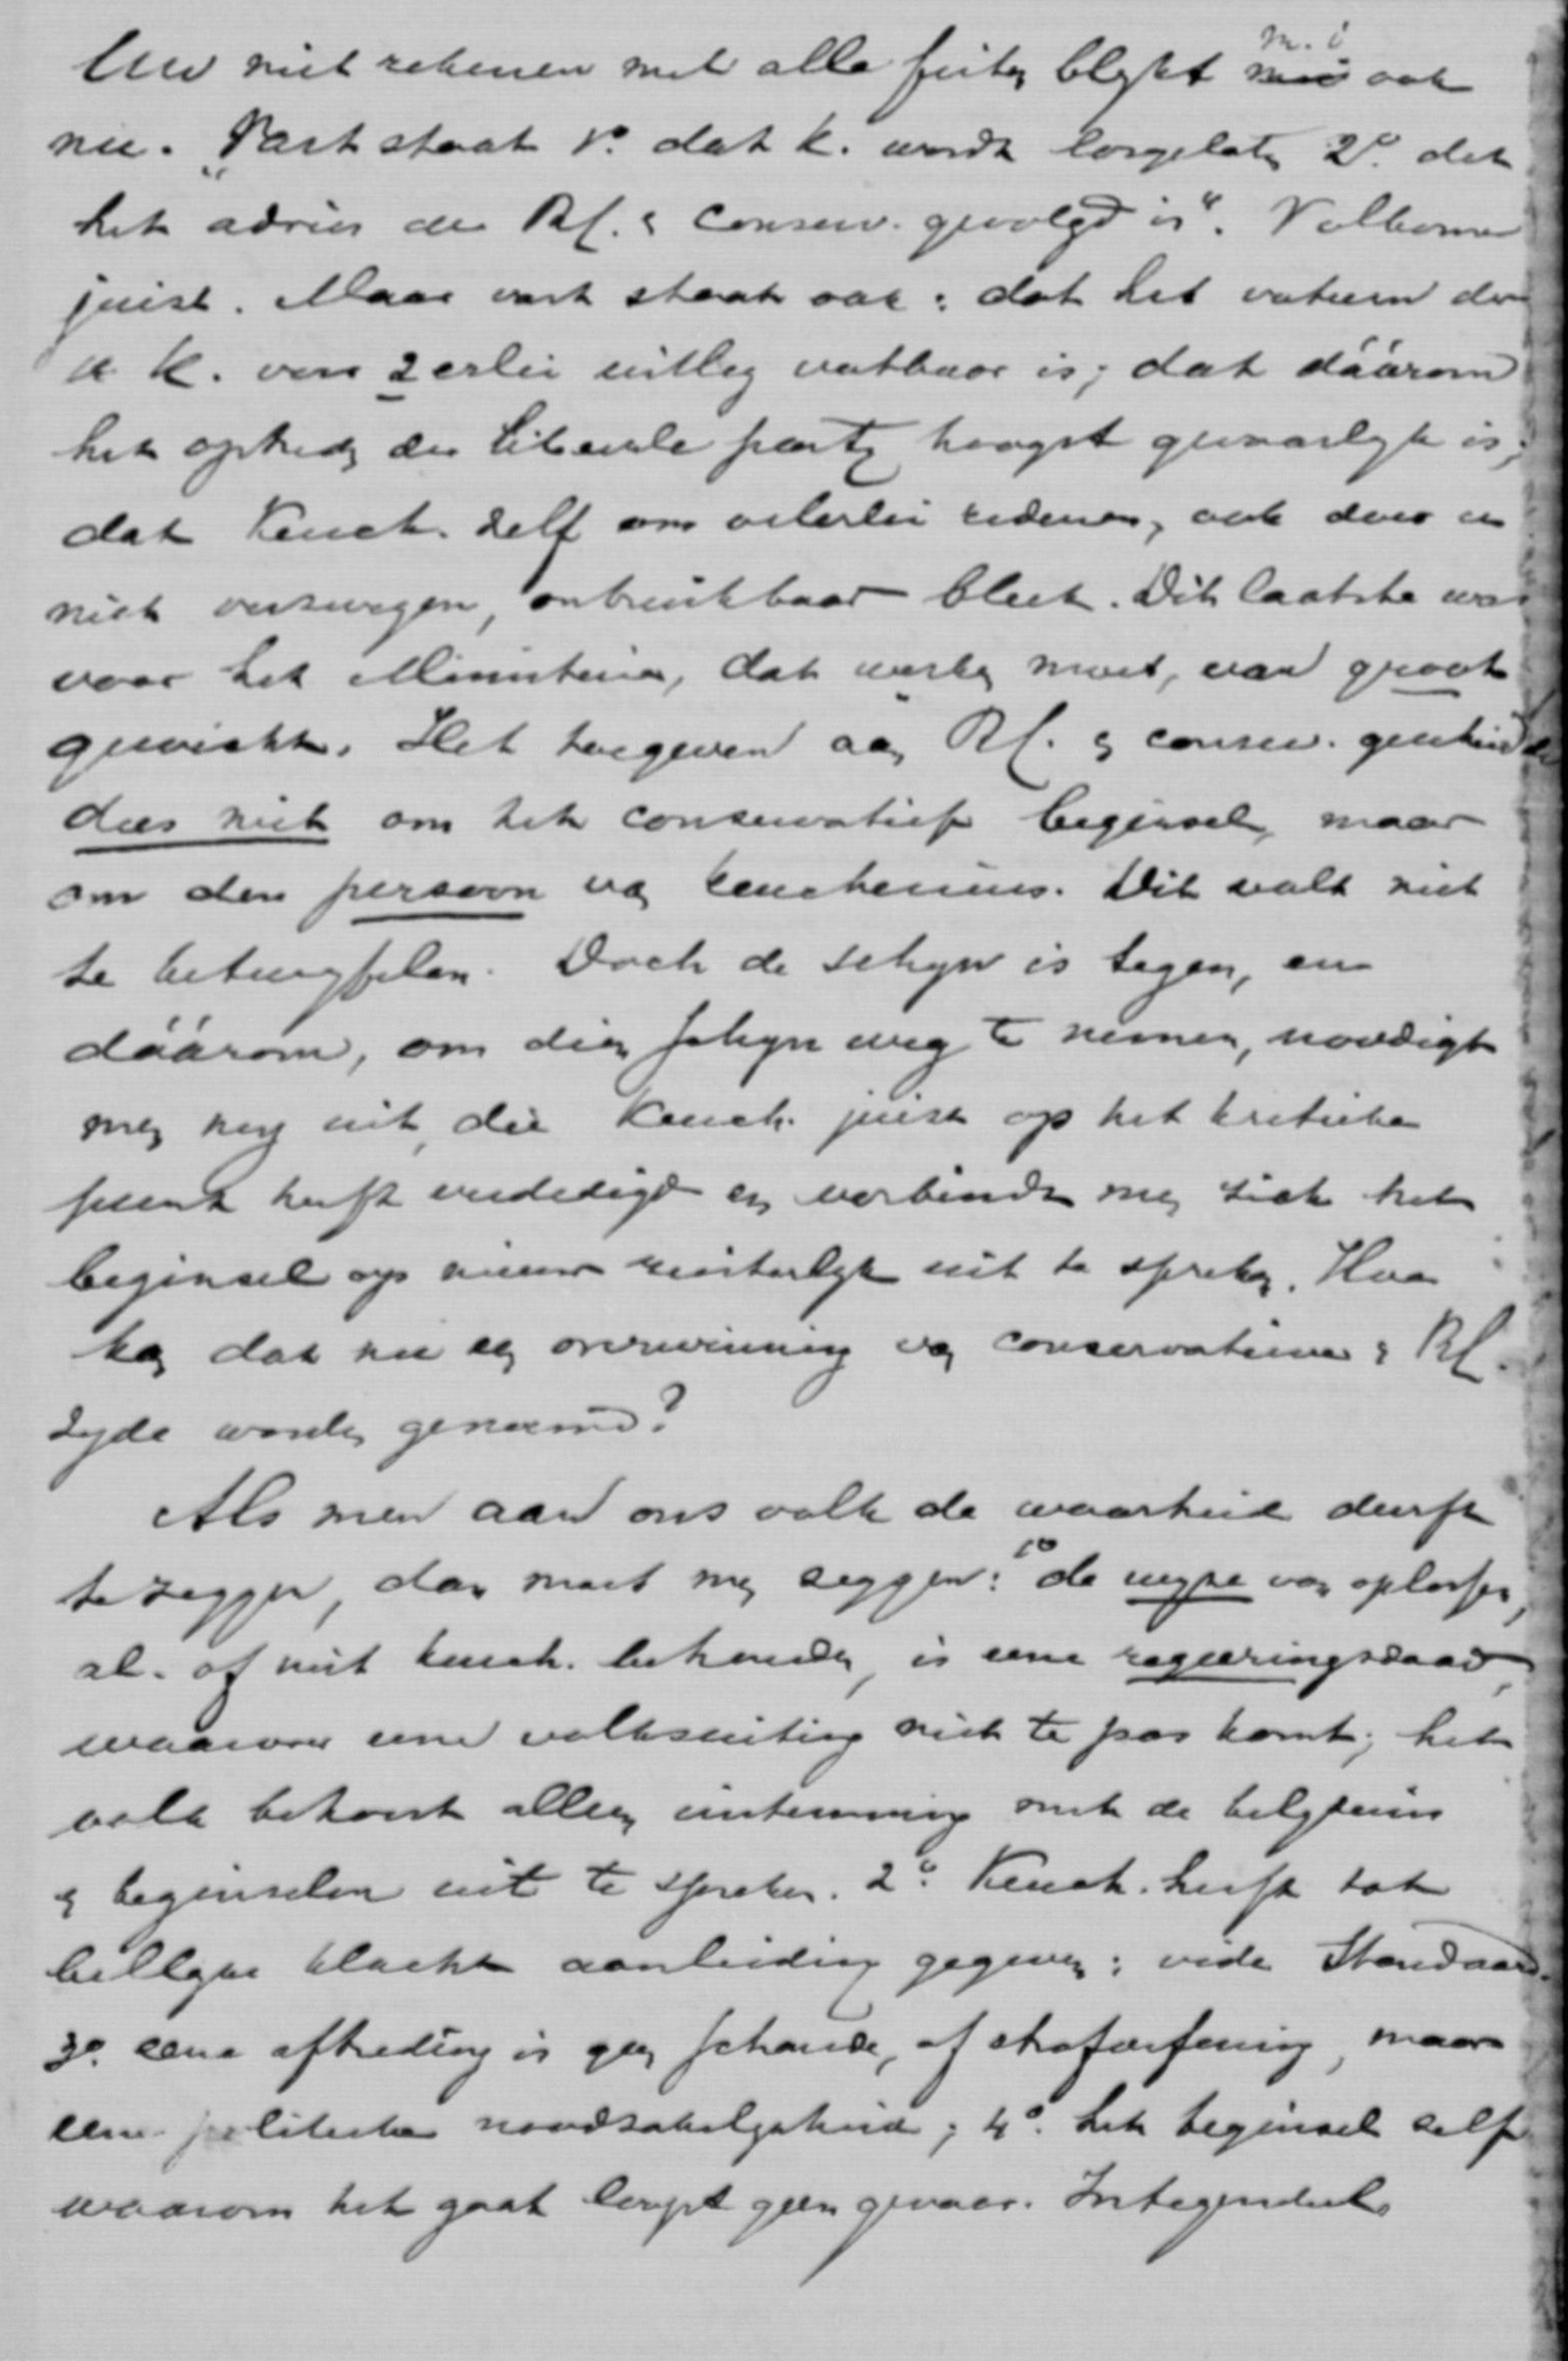 Uw niet rekenen met alle feiten blykt m. i ook
nu. "Vast staat 1o. dat K. wordt losgelaten 2o. dat
het adres der Rf. & Conserv. gevolgd is". Volkomen
juist. Maar vast staat ook: dat het votum der
K. voor 2 erlei uitleg vatbaar is; dat dáárom
het optreden der liberale party hoogst gevaarlyk is;
dat Keuch. zelf om velerlei redenen, ook door u
niet verzwegen, onbruikbaar bleek. Dit laatste was
voor het Ministerie, dat werken moet, van groot
gewicht. Het toegeven aan Rf. & conserv. geschiedde
dus niet om het conservatief beginsel, maar
om den persoon van Keuchenius. Dit valt niet
te betwyfelen. Doch de schyn is tegen, en
dáárom, om dien schyn weg te nemen, noodigt
men hen uit, die Keuch. juist op het kritieke
punt heeft verdedigd en verbindt men zich het
beginsel op nieuw ministerlyk uit te spreken. Hoe
kan dat nu een overwinning van conservatieve & Rf.
zyde worden genoemd?
Als men aan ons volk de waarheid durft
te zeggen, dan moet men zeggen: 1o de wyze van oplossen,
al- of niet Keuch. behouden, is eene regeeringsdaad,
waarvoor eene volksuiting niet te pas komt; het
volk behoort alleen instemming met de belydenis
& beginselen uit te spreken. 2o. Keuch. heeft tot
billyke klacht aanleiding gegeven: vide Standaard.
3o. eene aftreding is geen schande, of strafoefening, maar
eene politieke noodzakelykheid; 4o. het beginsel zelf
waarom het gaat loopt geen gevaar. Integendeel